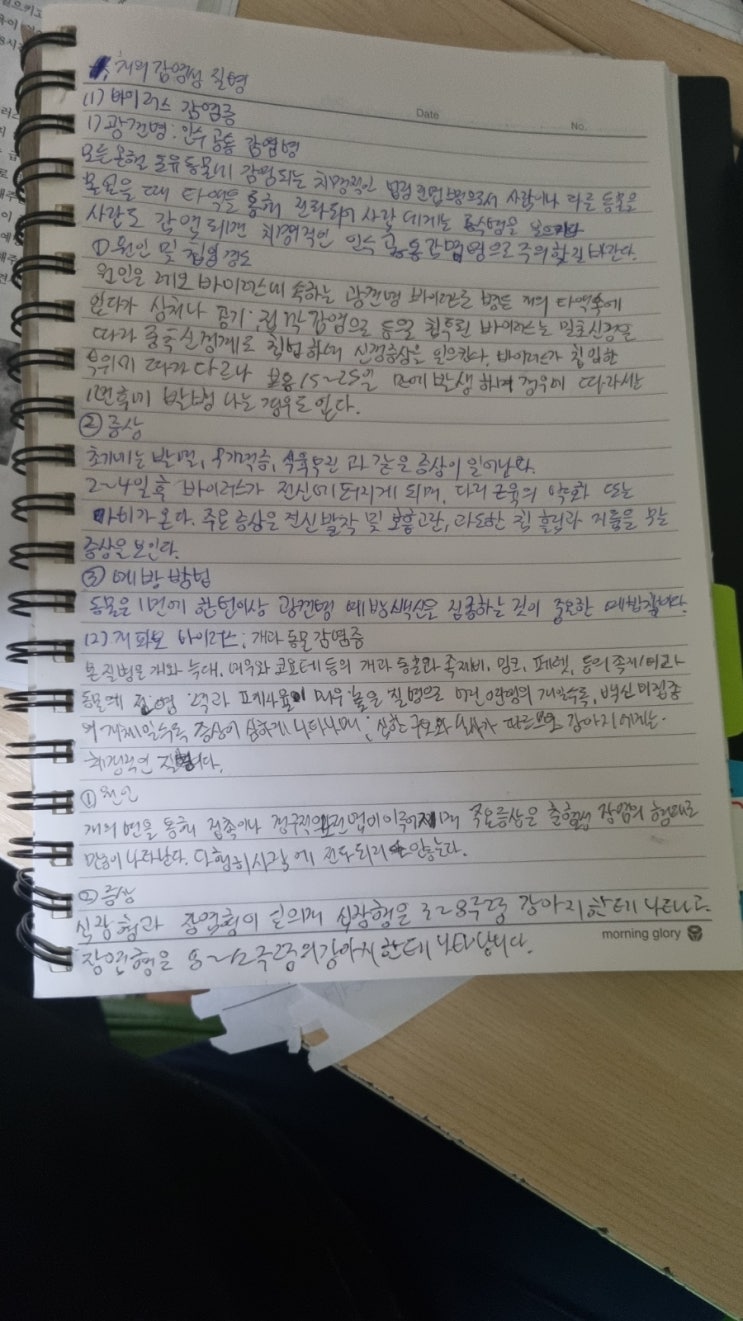 1. 개의 감염성 질병
Date No.
(1) 바이러스 감염증
1) 광견병: 인수 공통 감염병
모든 온혈 포유 동물에 감염되는 치명적인 법정 전염병으로서 사람이나 다른 동물을
물었을 때 타액을 통해 전파되어 사람에게는 공수병을 일으키다
사람도 감염되면 치명적인 인수 공통 감염병으로 주의할 필요가 있다.
① 원인 및 침입 경로
원인은 레오 바이러스에 속하는 광견병 바이러스로 병든 개의 타액속에
있다가 상처나 공기 접촉 감염으로 동물 침투된 바이러스는 말초신경을
따라 중추신경계로 침범하여 신경증상을 일으킨다. 바이러스가 침입한
부위에 따라 다르나 보통 15~25일 만에 발생하며 경우에 따라서는
1년후에 발병 나는 경우도 있다.
② 증상
초기에는 발열, 두개막증, 식욕부진 과 같은 증상이 일어난다.
2~4일후 바이러스가 전신에 퍼지게 되며, 다리 근육의 약화 또는
마비가 온다. 주요 증상은 전신발작 및 호흡곤란, 과도한 침 흘림과 거품을 무는
증상을 보인다.
③ 예방 방법
동물은 1년에 한번이상 광견병 예방백신을 접종하는 것이 중요한 예방법이다.
(2) 개 파보 바이러스: 개과 동물 감염증
본 질병은 개와 늑대, 여우와 코요테 등의 개과 동물과 족제비, 밍크, 페렛, 등의 족제비과
동물에 전염력과 폐사율이 매우 높은 질병으로 어린 연령의 개일수록, 백신 미접종
의 개체일수록 증상이 심하게 나타나며, 심한 구토와 설사가 따르므로 강아지에게는
치명적인 질병이다.
① 원인
개의 변을 통해 접촉이나 경구적인 전염이 이루어지며 주요증상은 출혈성 장염의 형태로
많이 나타난다. 다행히 사람에 전파되지는 않는다.
② 증상
심장형과 장염형이 있으며 심장형은 3~8주령 강아지한테 나타나고
장염형은 8~12주령의 강아지한테 나타납니다.
morning glory